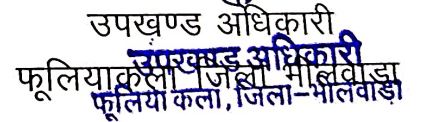 उपखण्ड अधिकारी
उपखण्ड अधिकारी
फूलियाकलां जिला भीलवाड़ा
फूलिया कलां, जिला-भीलवाड़ा